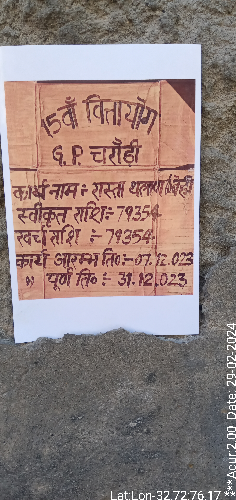 15वाँ वित्तायोग
G.P. चरौही
कार्य नाम:- रास्ता
स्वीकृत राशि:- 79354
खर्चा राशि :- 79354
कार्य आरम्भ ति०:- 07.12.023
" पूर्ण ति० :- 31.12.023
Lat:Lon-32.72:76.17
***Acur:2.00 Date: 29-02-2024